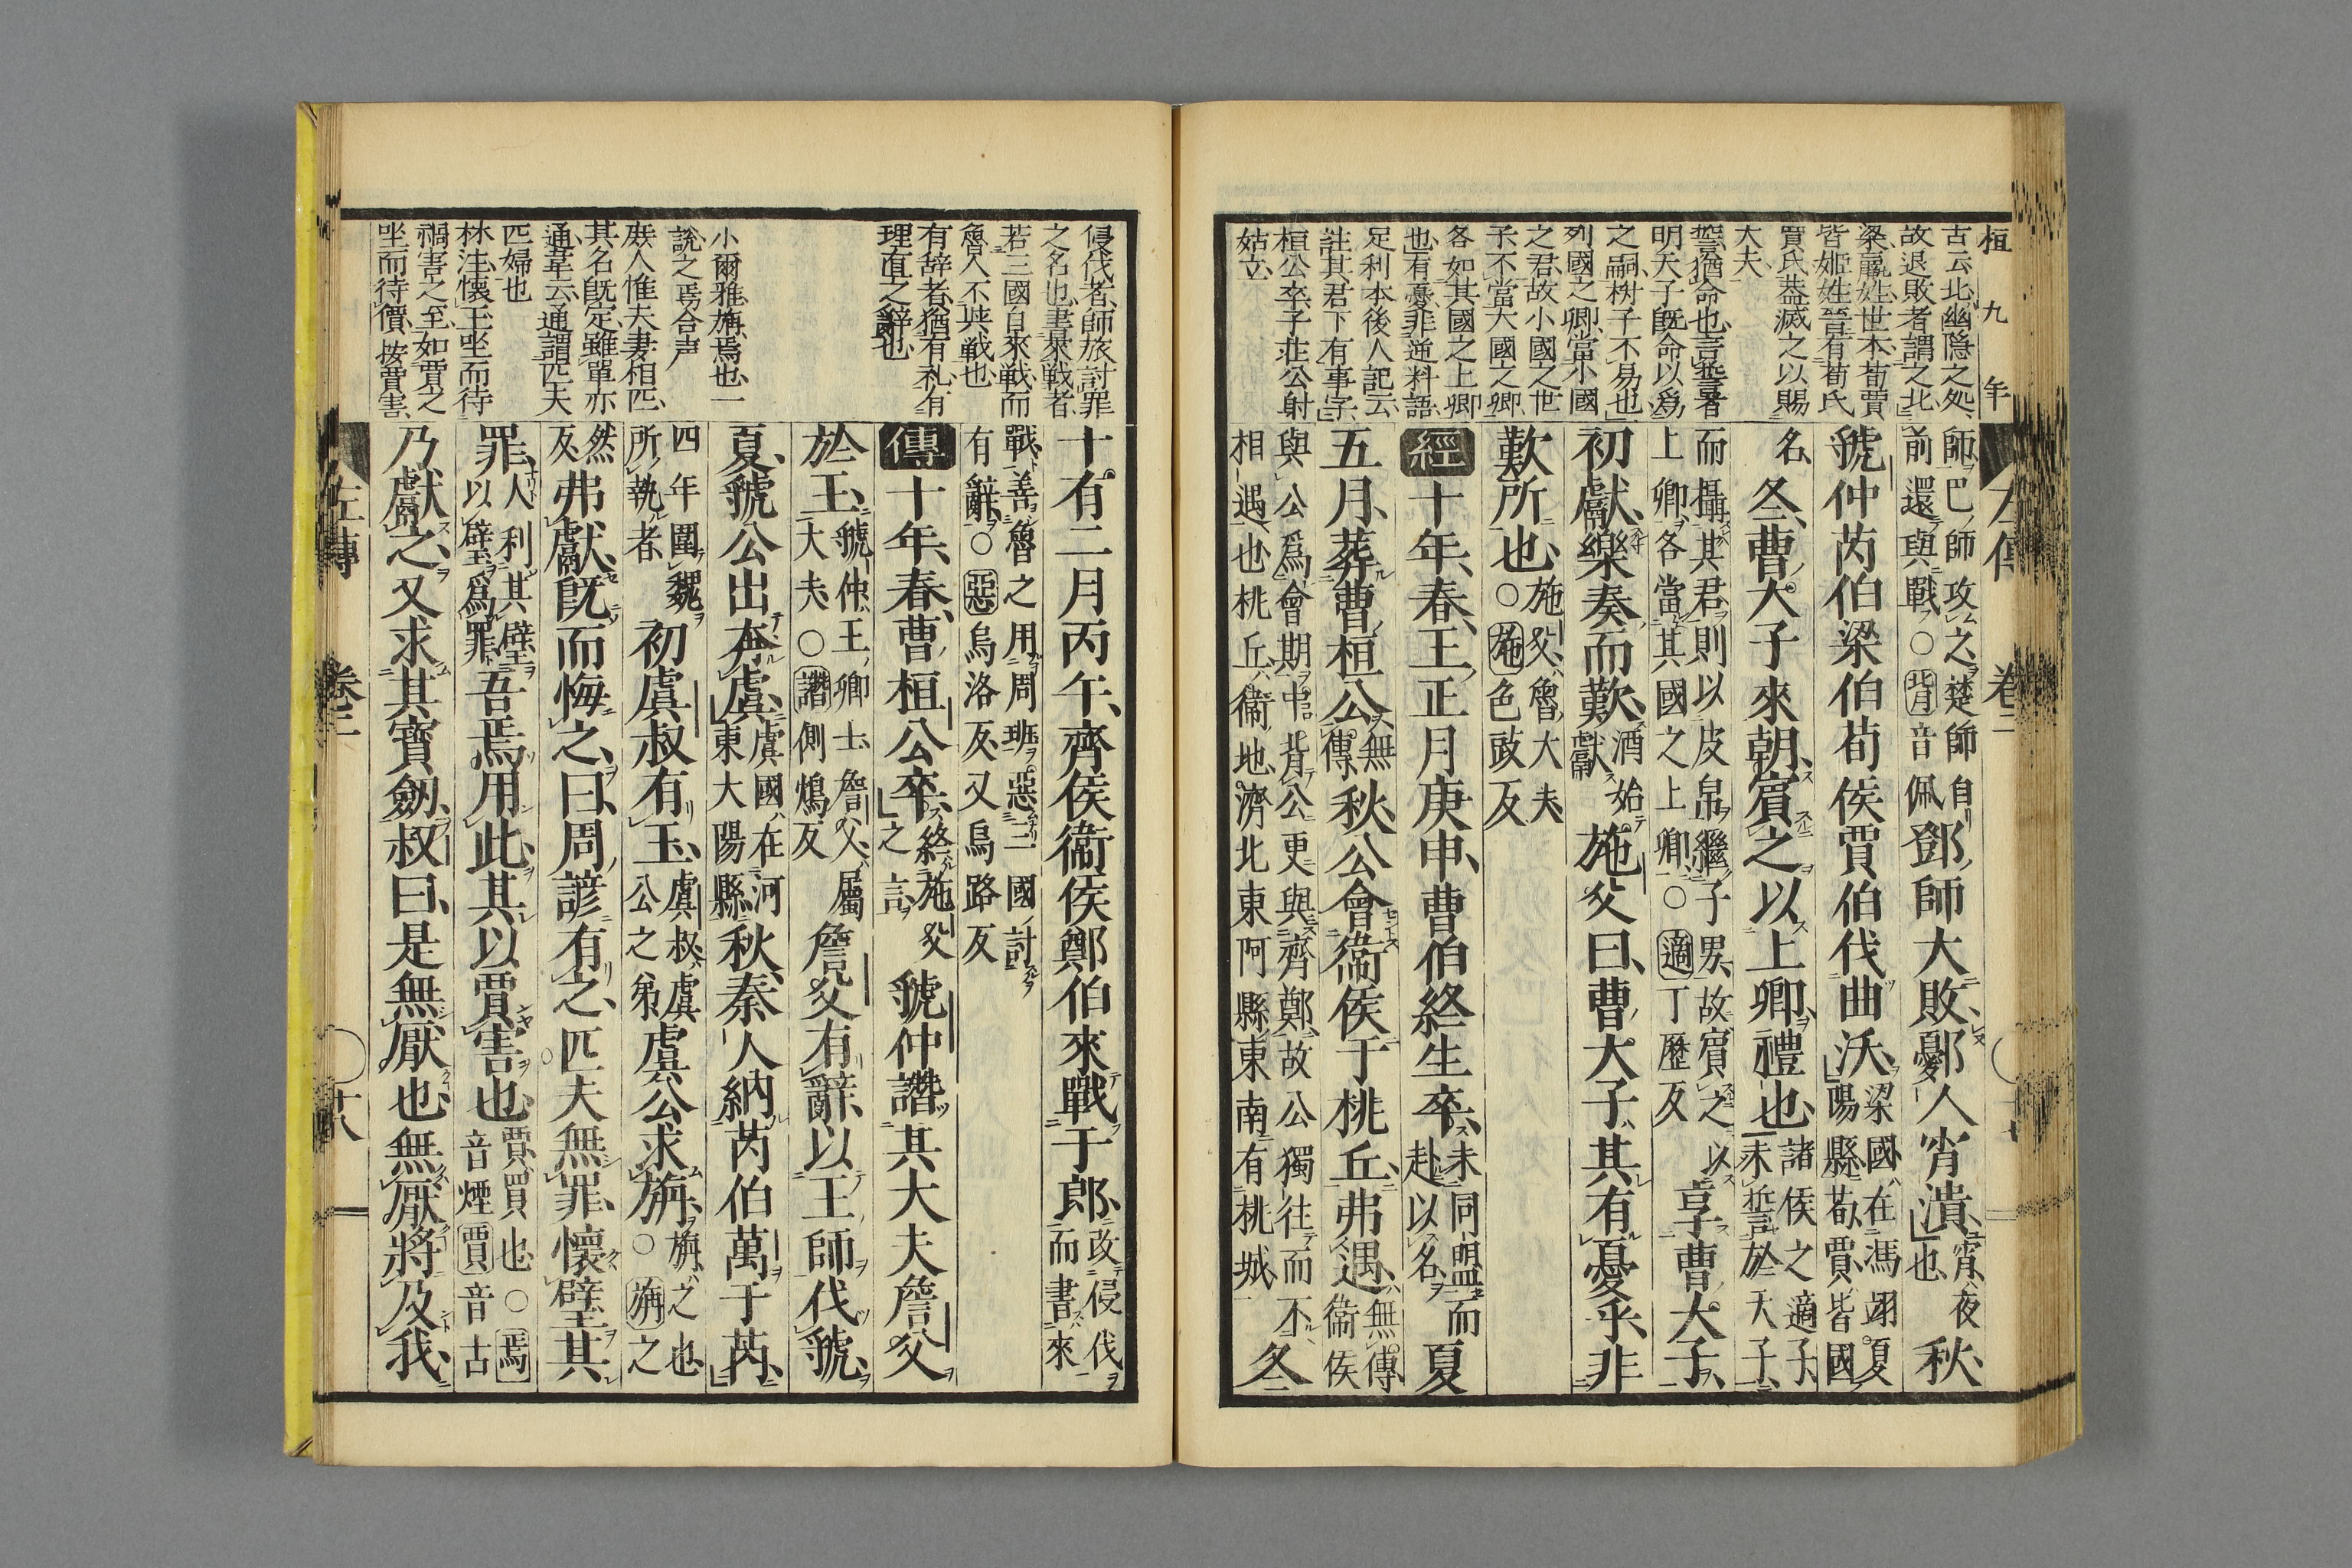 桓九年
古云北幽隱之処
故退敗者謂之北
梁嬴姓世本荀賈
皆姬姓晉有荀氏
賈氏蓋滅之以賜
大夫
誓猶命也言誓者
明天子既命以爲
之嗣樹子不易也
列國之卿當小國
之君故小國之世
子不當大國之卿
各如其國之上卿
也有憂非逆料語
足利本後人記云
註其君下有事字
桓公卒子莊公射
姑立
左傳 卷二
師巴師攻之楚師自
前還與戰○背音佩
鄧師大敗鄾人宵潰宵夜
也秋
虢仲芮伯梁伯荀侯賈伯伐曲沃梁國在馮翊夏
陽縣荀賈皆國
名冬曹大子來朝賓之以上卿禮也諸侯之適子
未誓於天子
而攝其君則以皮帛繼子男故賓之以
上卿各當其國之上卿○適丁歷反
享曹大子
初獻樂奏而歎酒始
獻施父曰曹大子其有憂乎非
歎所也施父魯大夫
○施色豉反
經十年春王正月庚申曹伯終生卒未同盟而
赴以名夏
五月葬曹桓公無
傳秋公會衞侯于桃丘弗遇無傳
衞侯
與公爲會期中背公更與齊鄭故公獨往而不
相遇也桃丘衞地濟北東阿縣東南有桃城
冬
侵伐者師旅討罪
之名也書來戰者
若三國自來戰而
魯人不與戰也
有辞者猶有礼有
理直之辭也
小爾雅旃焉也一
說之焉合声
庶人惟夫妻相匹
其名既定雖單亦
通韋云通謂匹夫
匹婦也
林注懷玉坐而待
禍害之至如賈之
坐而待價按賈害
十有二月丙午齊侯衞侯鄭伯來戰于郎改侵伐
而書來
戰善魯之用周班惡三國討
有辭○惡烏洛反又烏路反
傳十年春曹桓公卒終施父
之言虢仲譖其大夫詹父
於王虢仲王卿士詹父屬
大夫○譖側鴆反詹父有辭以王師伐虢
夏虢公出奔虞虞國在河
東大陽縣秋秦人納芮伯萬于芮
四年圍魏
所執者初虞叔有玉虞叔虞
公之弟虞公求旃旃之也
○旃之
然反弗獻既而悔之曰周諺有之匹夫無罪懷璧其
罪人利其璧
以璧爲罪吾焉用此其以賈害也賈買也○焉
音煙賈音古
乃獻之又求其寶劒叔曰是無厭也無厭將及我
左傳 卷二 十八